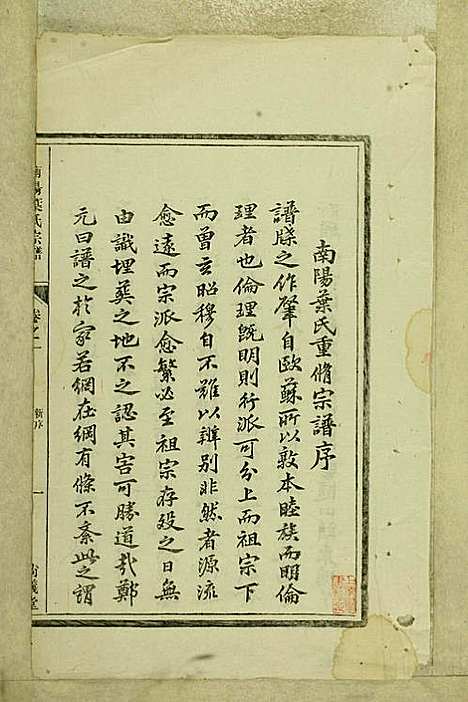 南陽葉氏重脩宗譜序
譜牒之作肇自歐蘇所以敦本睦族而明倫
理者也倫理既明則行派可分上而祖宗下
而曾玄昭穆自不難以辨別非然者源流
愈遠而宗派愈繁必至祖宗存歿之日無
由識埋葬之地不之認其害可勝道哉鄭
元曰譜之於家若網在綱有條不紊此之謂
南陽葉氏宗譜
卷之一
新序
一